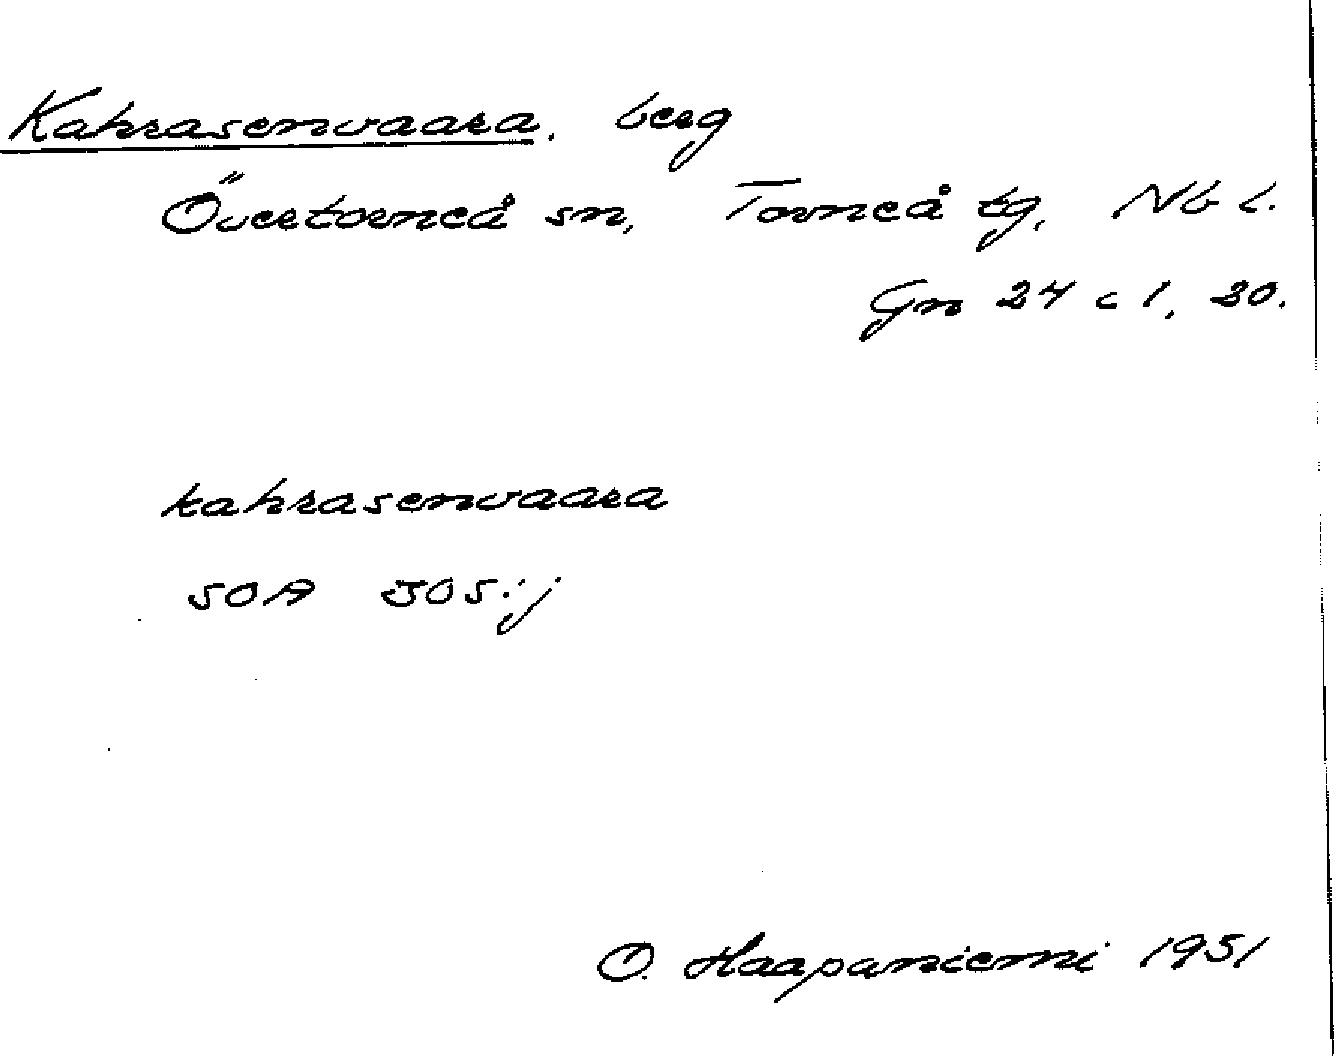 Kahrasenvaara, berg
Övertorneå sn, Torneå tg, Nb l.
Gn 24 c 1, 20.
kahrasenvaara
SOA 305:j
O. Haapaniemi 1951